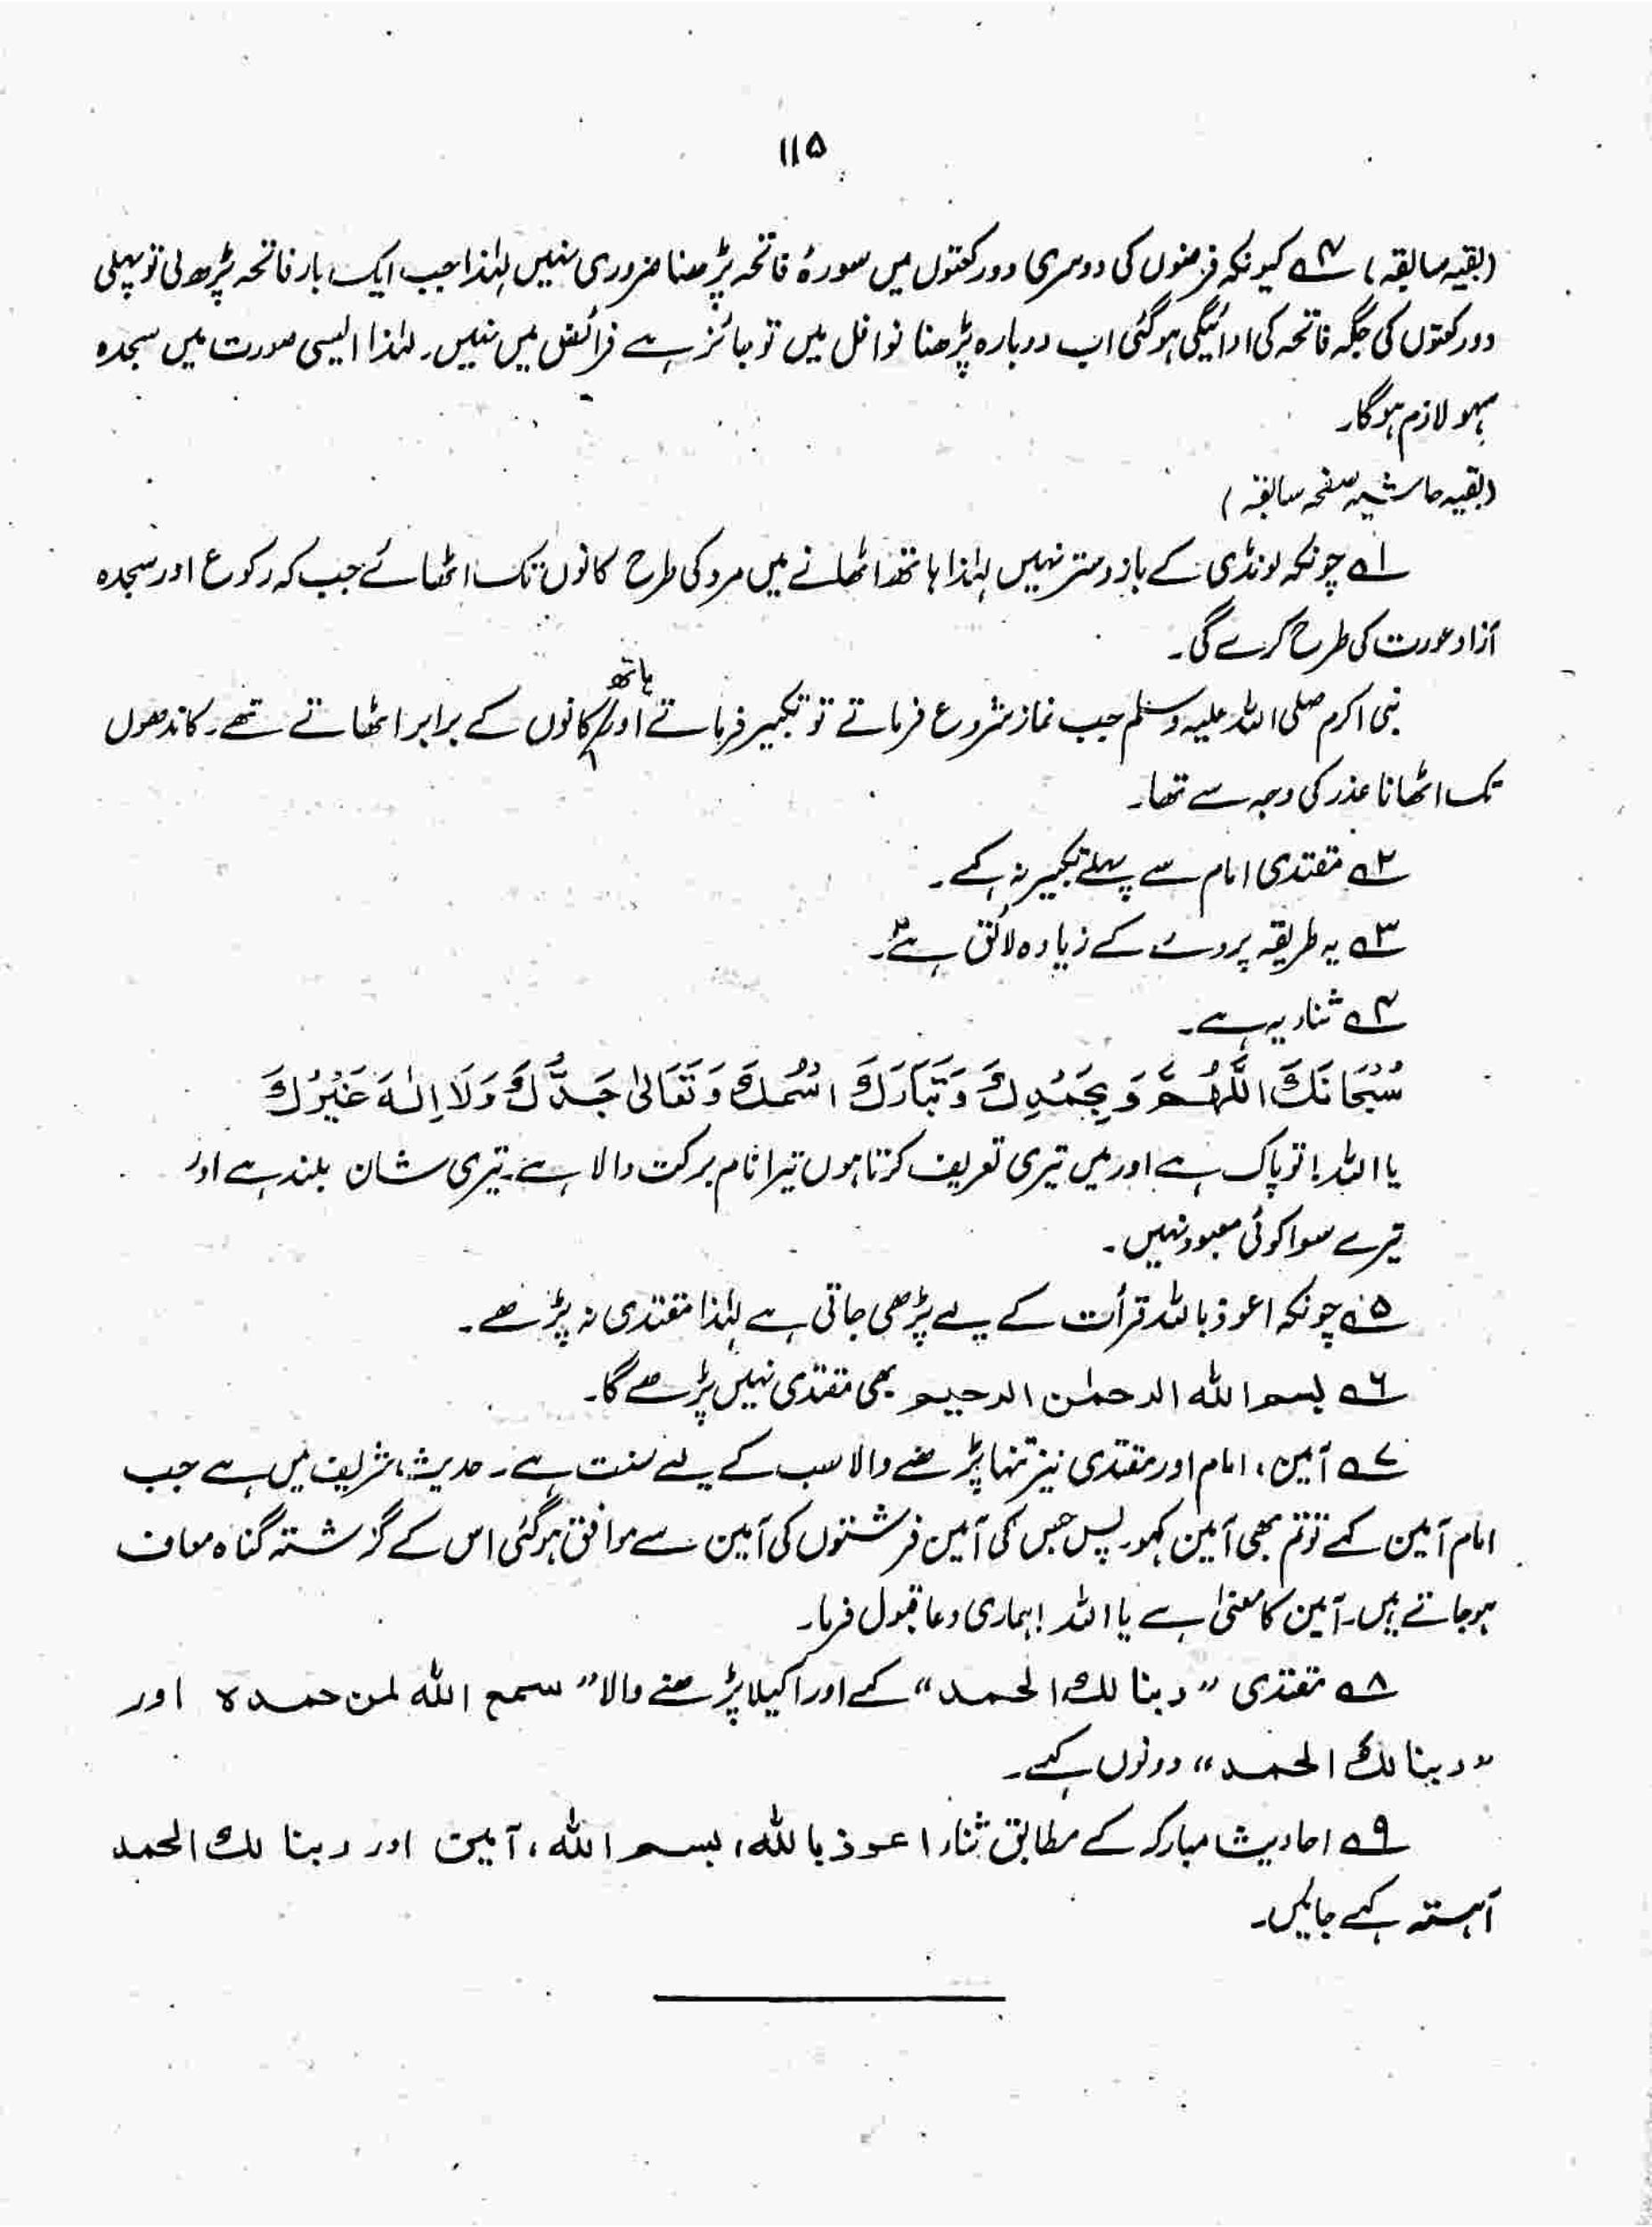 ۱۱۵
(بقیہ سابقہ) ۴؎ کیونکہ فرضوں کی دوسری دو رکعتوں میں سورۂ فاتحہ پڑھنا ضروری نہیں لہٰذا جب ایک بار فاتحہ پڑھ لی تو پہلی
دو رکعتوں کی جگہ فاتحہ کی ادائیگی ہو گئی اب دوبارہ پڑھنا نوافل میں تو جائز ہے فرائض میں نہیں۔ لہٰذا ایسی صورت میں سجدہ
سہو لازم ہو گا۔
(بقیہ حاشیہ صفحہ سابقہ)
۱؎ چونکہ لونڈی کے بازو ستر نہیں لہٰذا ہاتھ اٹھانے میں مرد کی طرح کانوں تک اٹھائے جب کہ رکوع اور سجدہ
آزاد عورت کی طرح کرے گی۔
نبی اکرم صلی اللہ علیہ وسلم جب نماز شروع فرماتے تو تکبیر فرماتے اور ہاتھ کانوں کے برابر اٹھاتے تھے۔ کاندھوں
تک اٹھانا عذر کی وجہ سے تھا۔
۲؎ مقتدی امام سے پہلے تکبیر نہ کہے۔
۳؎ یہ طریقہ پردے کے زیادہ لائق ہے۔
۴؎ ثناء یہ ہے۔
سُبْحَانَكَ اللّٰهُمَّ وَ بِحَمْدِكَ وَ تَبَارَكَ اسْمُكَ وَ تَعَالىٰ جَدُّكَ وَلَا اِلٰهَ غَيْرُكَ
یا اللہ! تو پاک ہے اور میں تیری تعریف کرتا ہوں تیرا نام برکت والا ہے۔ تیری شان بلند ہے اور
تیرے سوا کوئی معبود نہیں۔
۵؎ چونکہ اعوذ باللہ قرأت کے لیے پڑھی جاتی ہے لہٰذا مقتدی نہ پڑھے۔
۶؎ بسم الله الرحمٰن الرحیم بھی مقتدی نہیں پڑھے گا۔
۷؎ آمین، امام اور مقتدی نیز تنہا پڑھنے والا سب کے لیے سنت ہے۔ حدیث شریف میں ہے جب
امام آمین کہے تو تم بھی آمین کہو۔ پس جس کی آمین فرشتوں کی آمین سے موافق ہو گئی اس کے گزشتہ گناہ معاف
ہو جاتے ہیں۔ آمین کا معنیٰ ہے یا اللہ! ہماری دعا قبول فرما۔
۸؎ مقتدی "ربنا لك الحمد" کہے اور اکیلا پڑھنے والا "سمع الله لمن حمدہ اور
"ربنا لك الحمد" دونوں کہے۔
۹؎ احادیث مبارکہ کے مطابق ثناء اعوذ بالله، بسم الله، آمین اور ربنا لك الحمد
آہستہ کہے جائیں۔